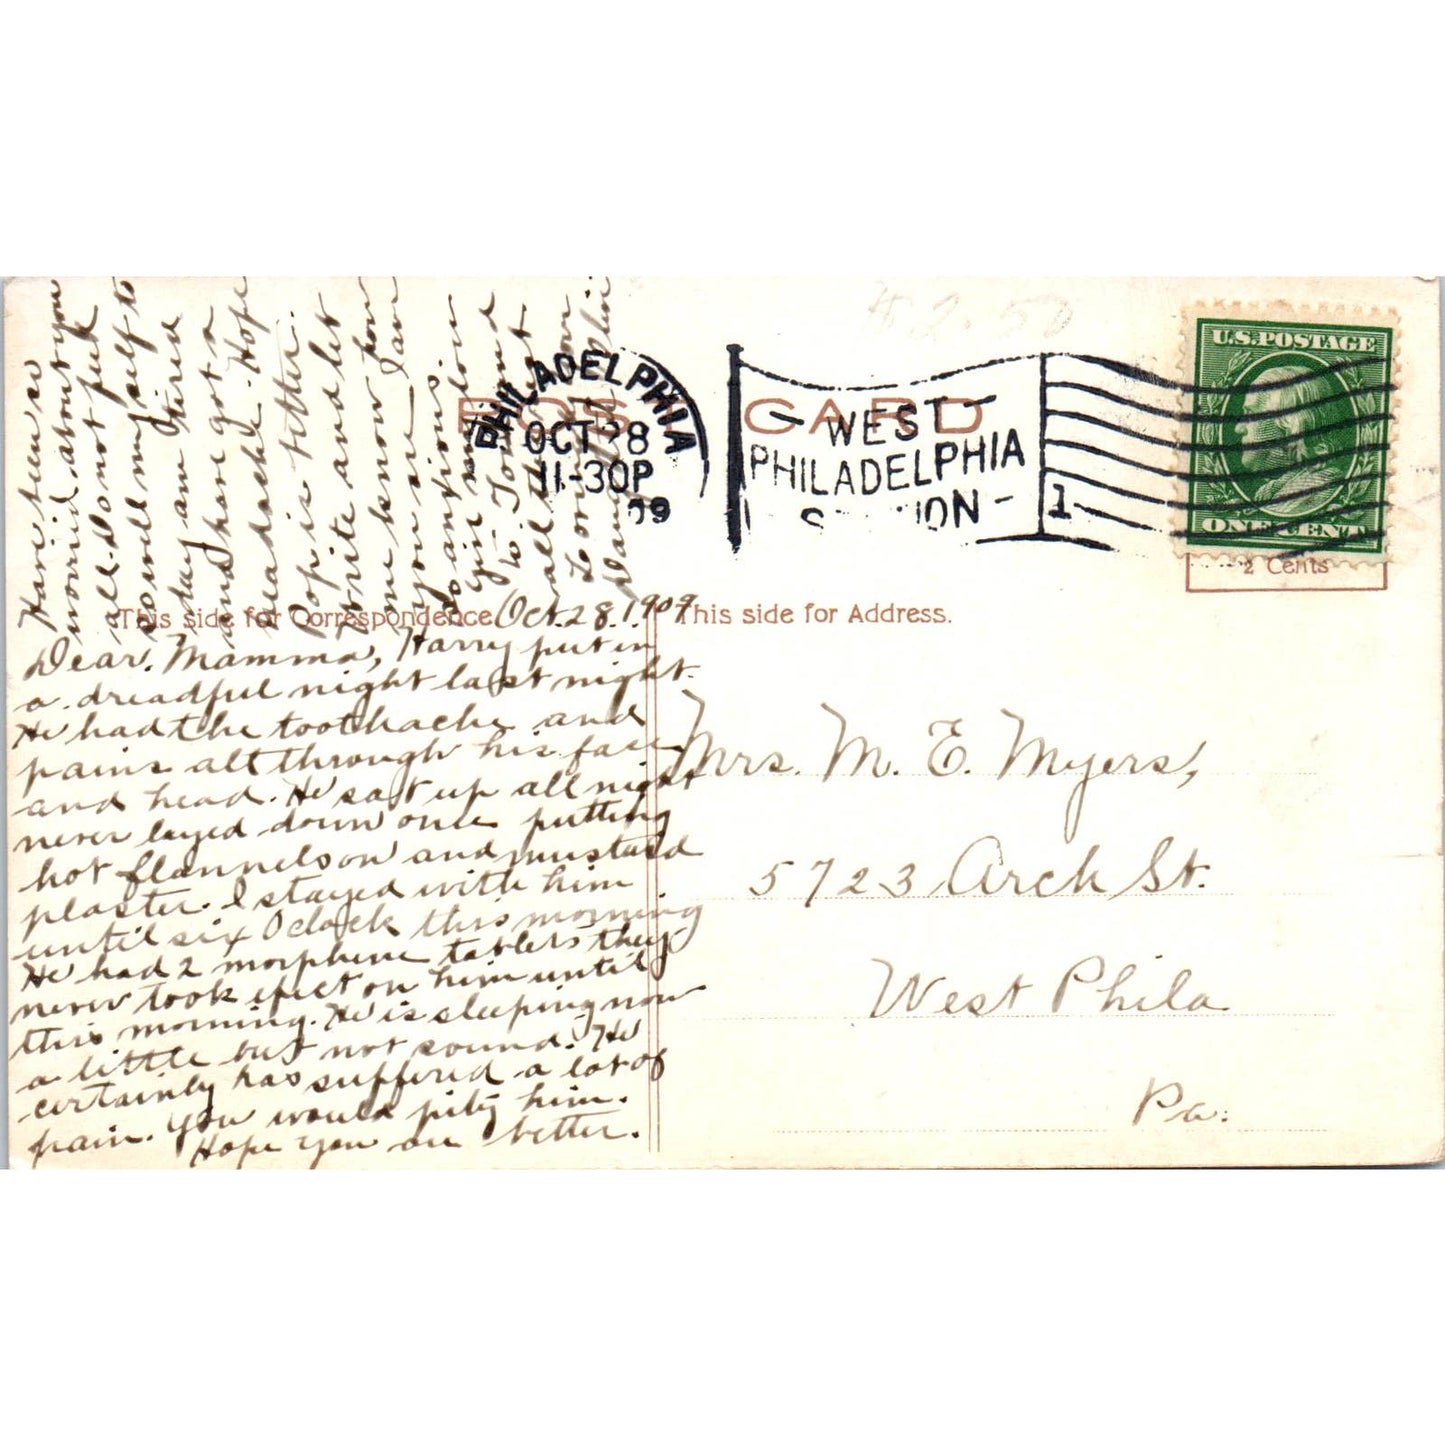 Oct. 28. 1909
Dear Mamma, Harry put in
a dreadful night last night.
He had the toothache and
pains all through his face
and head. He sat up all night
never layed down once putting
hot flannels on and mustard
plaster. I stayed with him
until six Oclock this morning
He had 2 morphene tablets they
never took efect on him until
this morning. He is sleeping now
a little but not sound. He
certainly has suffered a lot of
pain. You would pity him.
Hope you are better.
Have been so
worried about you
all. Do not feel
so well myself to
day am tired
and have got a
headache. Hope
Pop is better.
Write and let
me know how
you are I am
so anxious
Give my love
to Tom and
all the
POST CARD
PHILADELPHIA
OCT 28
11-30P
09
WEST
PHILADELPHIA
STATION
1
U.S. POSTAGE
ONE CENT
2 Cents
#2.50
This side for Correspondence
This side for Address.
Mrs. M. E. Myers,
5723 Arch St.
West Phila
Pa.